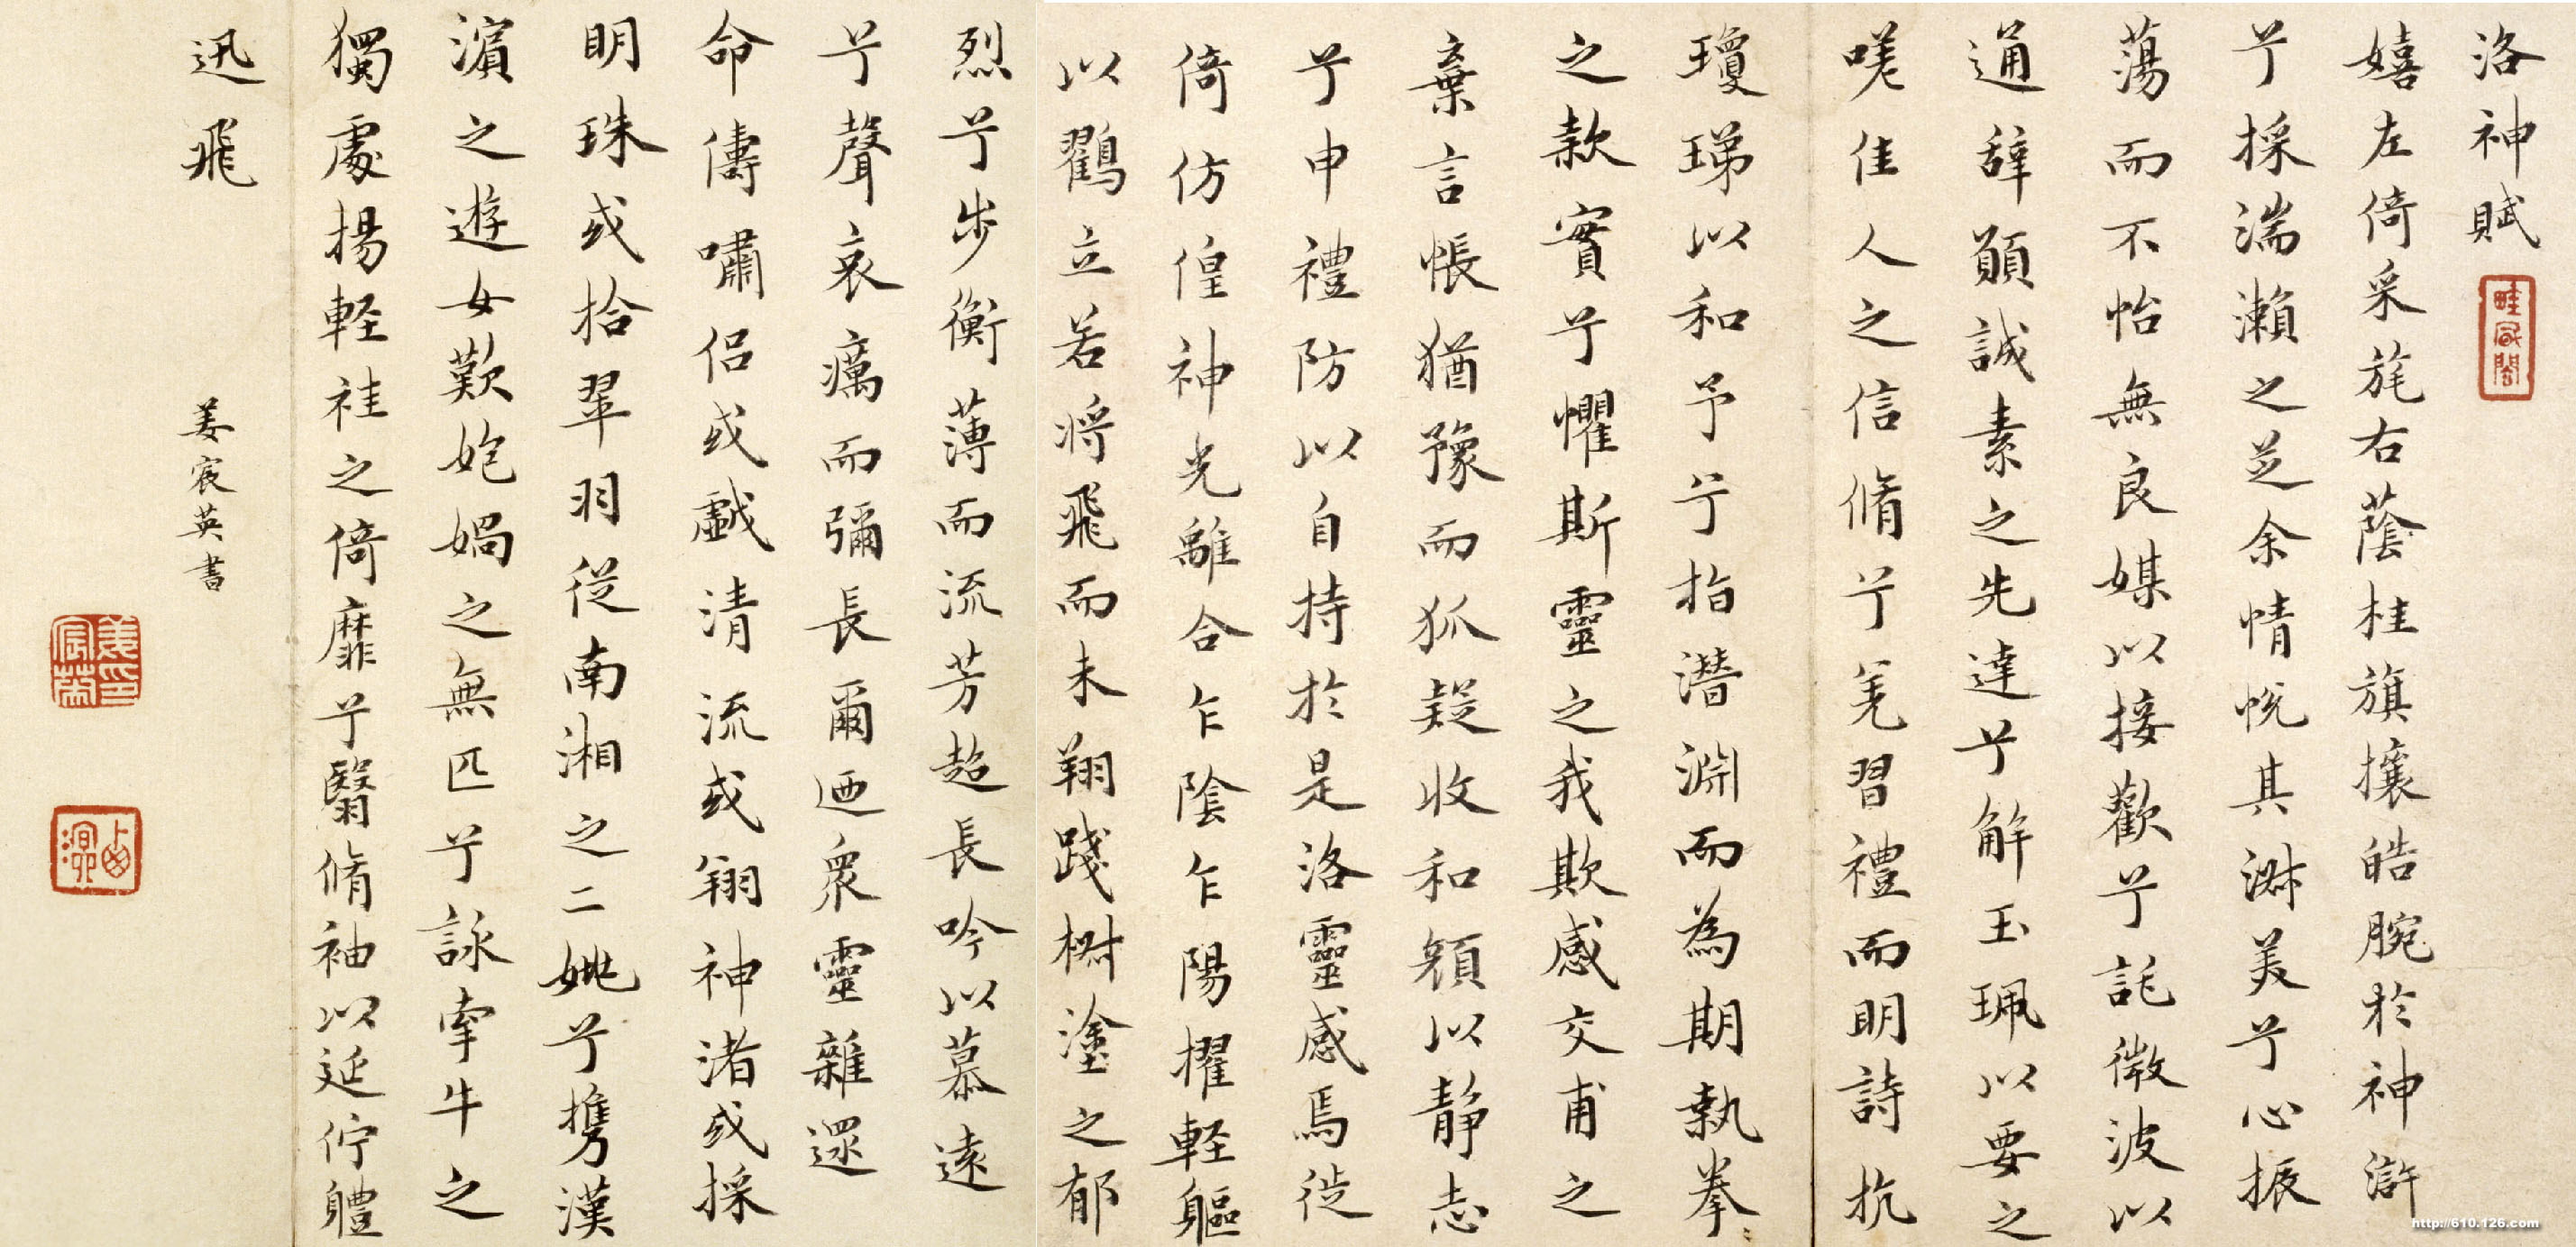 洛神賦
嬉左倚采旄右蔭桂旗攘皓腕於神滸
兮採湍瀨之芝余情悅其淑美兮心振
蕩而不怡無良媒以接歡兮託微波以
通辭願誠素之先達兮解玉珮以要之
嗟佳人之信脩兮羌習禮而明詩抗
瓊珶以和予兮指潛淵而為期執拳
之款實兮懼斯靈之我欺感交甫之
棄言悵猶豫而狐疑收和顏以静志
兮申禮防以自持於是洛靈感焉徙
倚仿偟神光離合乍陰乍陽擢軽軀
以鸖立若将飛而未翔踐椒塗之郁
烈兮步衡薄而流芳超長吟以慕遠
兮聲哀癘而彌長爾迺衆靈雜遝
命儔嘯侣或戲清流或翔神渚或採
明珠或拾翠羽從南湘之二姚兮携漢
濵之遊女歎匏媧之無匹兮詠牽牛之
獨處揚軽袿之倚靡兮翳脩袖以延佇軆
迅飛
姜宸英書
姜宸英印
http://610.126.com